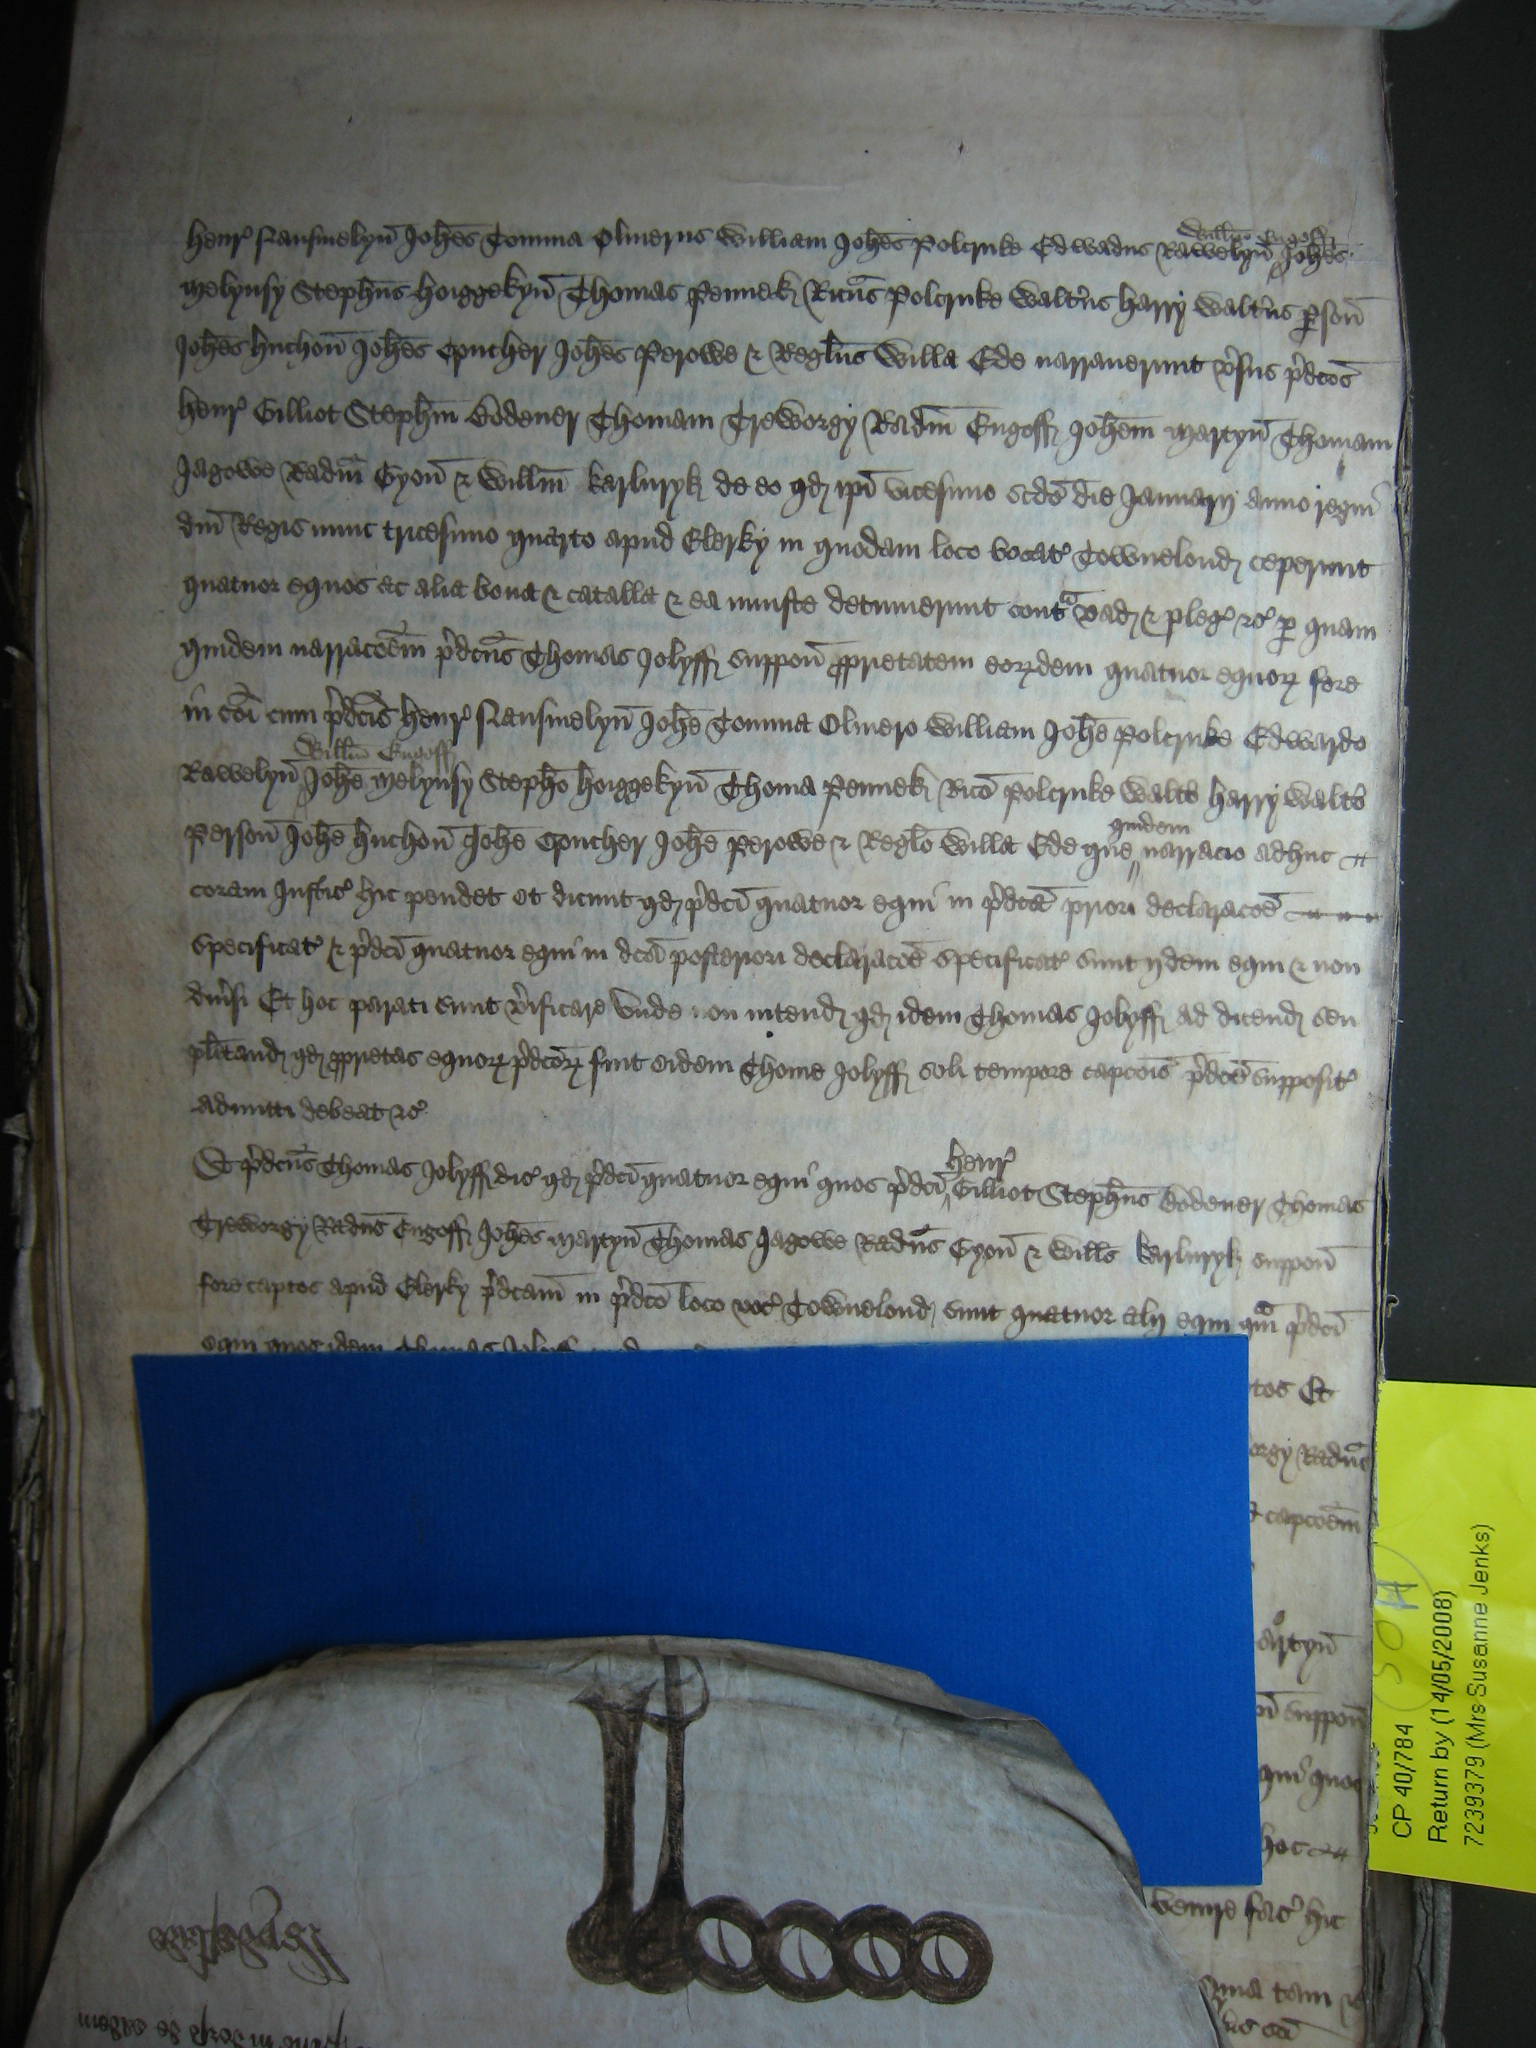 Henr' Nansmelyn Joh̄es Tomma Oliuerus William Joh̄es Polcruke Edwadus Rawelyn Willm̄s Engoff Joh̄es
Melynsy Steph̄us Hoiggekyn Thomas Pennek Ric̄us Polcruke Walt'us Harry Walt'us p̱son̄
Joh̄es Huchon̄ Joh̄es Coucher Joh̄es Perowe & Regl̄us Willa Ede narrauerunt v'sus p'dc̄os
Henr' Gilliot Steph̄m Bodener Thomam Treworgy Rad̄m Engoff Joh̄em Martyn̄ Thomam
Jagowe Rad̄m Gyon̄ & Will̄m Karluryk de eo qd ip̄i vicesimo sc̄do die Januarij anno regni
dn̄i Regis nunc tricesimo quarto apud Elerky in quodam loco vocat' Townelond ceperunt
quatuor equos ac alia bona & catalla & ea iniuste detinuerunt contᵃ vad & pleg' &c' p̱ quam
quidem narrac̄oem p'dc̄us Thomas Jolyff suppon̄ ꝓprietatem eorꝫdem quatuor equorꝫ fore
in co̅i cum p'dc̄is Henr' Nansmelyn̄ Joh̄e Tomma Oliuero William Joh̄e Polcruke Edwardo
Rawelyn̄ Will̄o Engoff Joh̄e Melynsy Steph̄o Hoiggekyn̄ Thoma Pennek Ric̄o Polcruke Walt'o Harry Walt'o
Person̄ Joh̄e Huchon̄ Joh̄e Coucher Joh̄e Perowe & Regl̄o Willa Ede que quidem narracio adhuc
coram Justic' hic pendet et dicunt qd p'dc̄i quatuor equi in p'dc̄a priori declarac̄oe
specificat' & p'dc̄i quatuor equi in dc̄a posteriori declarac̄oe specificat' sunt ijdem equi & non
diu'si Et hoc parati sunt v'ificare vnde non intend qd idem Thomas Jolyff ad dicend seu
pl̄itand qd ꝓprietas equorꝫ p'dc̄orꝫ fuit eidem Thome Jolyff soli tempore capc̄ois p'dc̄e supposit'
admitti debeat &c'
Et p'dc̄us Thomas Jolyff dic' qd p'dc̄i quatuor equi quos p'dc̄i Henr' Gilliot Steph̄us Bodener Thomas
Treworgy Rad̄us Engoff Joh̄es Martyn̄ Thomas Jagowe Rad̄us Gyon̄ & Will̄s Karluryk suppon̄
fore captos apud Elerky p'dc̄am in p'dc̄o loco voc' Townelond sunt quatuor alij equi qᵃm p'dc̄i
equi quos idem Thomas Jolyff
Et
Rad̄us
capc̄oem
suppon̄
quos
hoc
venire fac' hic
tam
CP 40/784
Return by (14/05/2008)
7239379 (Mrs Susanne Jenks)